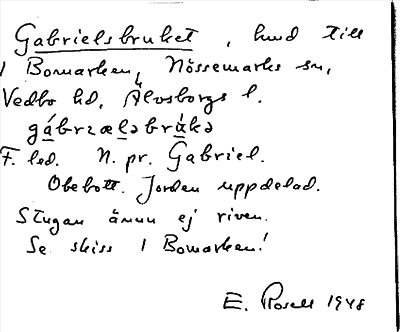 Gabrielsbruket, hmd till
1 Bomarken, Nössemarks sn,
Vedbo hd, Älvsborgs l.
gábrɪæḷəbrὰkə
F. led. N. pr. Gabriel.
Obebott. Jorden uppdelad.
Stugan ännu ej riven.
Se skiss 1 Bomarken!
E. Rosell 1948